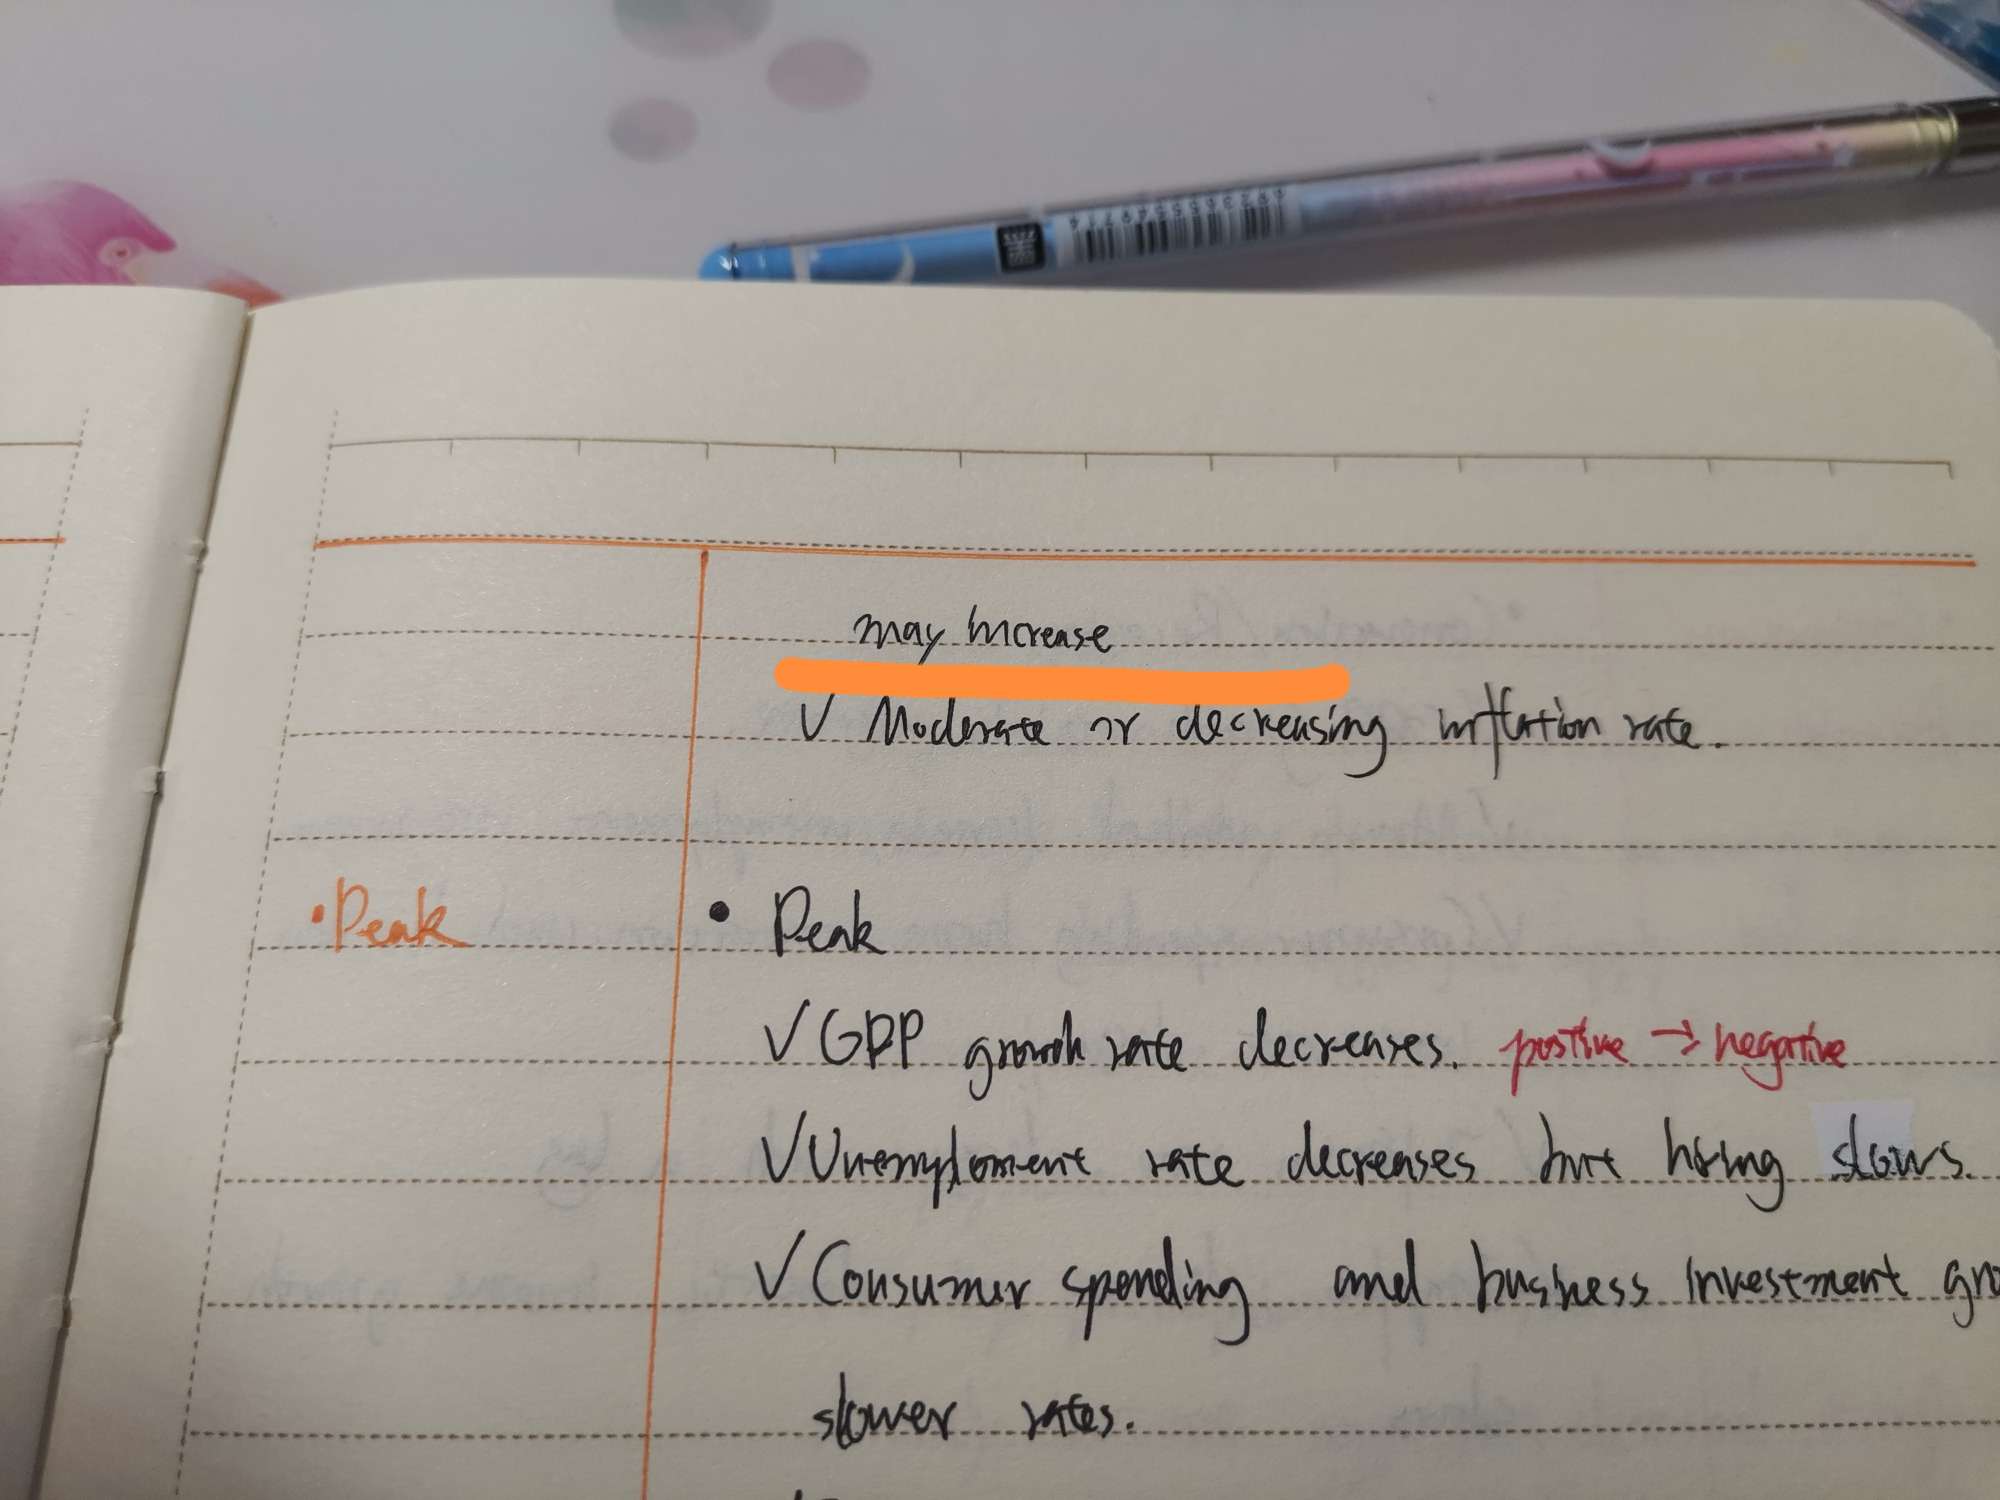 6923655549714
may increase
✓ Moderate or decreasing inflation rate.
• Peak • Peak
✓ GDP growth rate decreases. positive → negative
✓ Unemploment rate decreases but hiring slows.
✓ Consumer spending and business investment gro
slower rates.